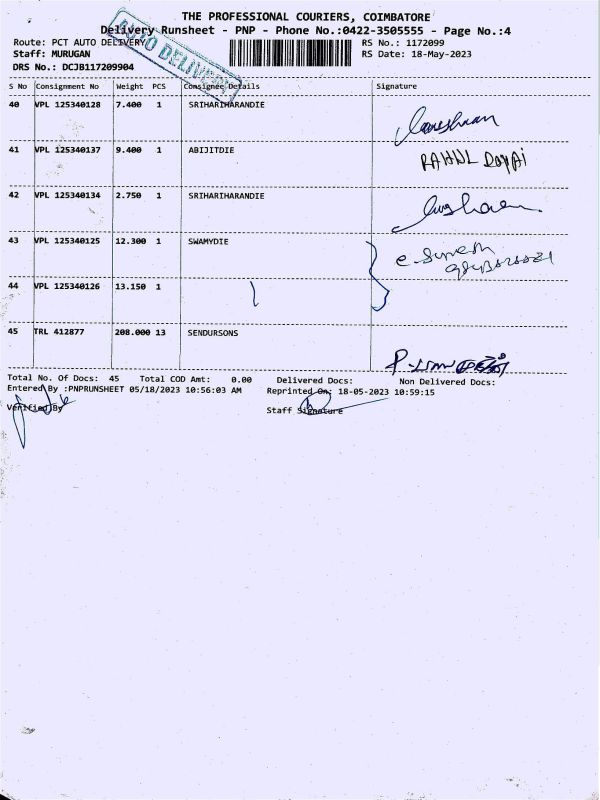 THE PROFESSIONAL COURIERS, COIMBATORE
Delivery Runsheet - PNP - Phone No.:0422-3505555 - Page No.:4
Route: PCT AUTO DELIVERY
RS No.: 1172099
Staff: MURUGAN
RS Date: 18-May-2023
DRS No.: DCJB117209904
AUTO DELIVERY
S No Consignment No Weight PCS Consignee Details Signature
40 VPL 125340128 7.400 1 SRIHARIHARANDIE
41 VPL 125340137 9.400 1 ABIJITDIE
RAHUL
42 VPL 125340134 2.750 1 SRIHARIHARANDIE
43 VPL 125340125 12.300 1 SWAMYDIE
e. Suresh
44 VPL 125340126 13.150 1
45 TRL 412877 208.000 13 SENDURSONS
Total No. Of Docs: 45 Total COD Amt: 0.00 Delivered Docs: Non Delivered Docs:
Entered By :PNPRUNSHEET 05/18/2023 10:56:03 AM Reprinted On: 18-05-2023 10:59:15
Verified By Staff Signature